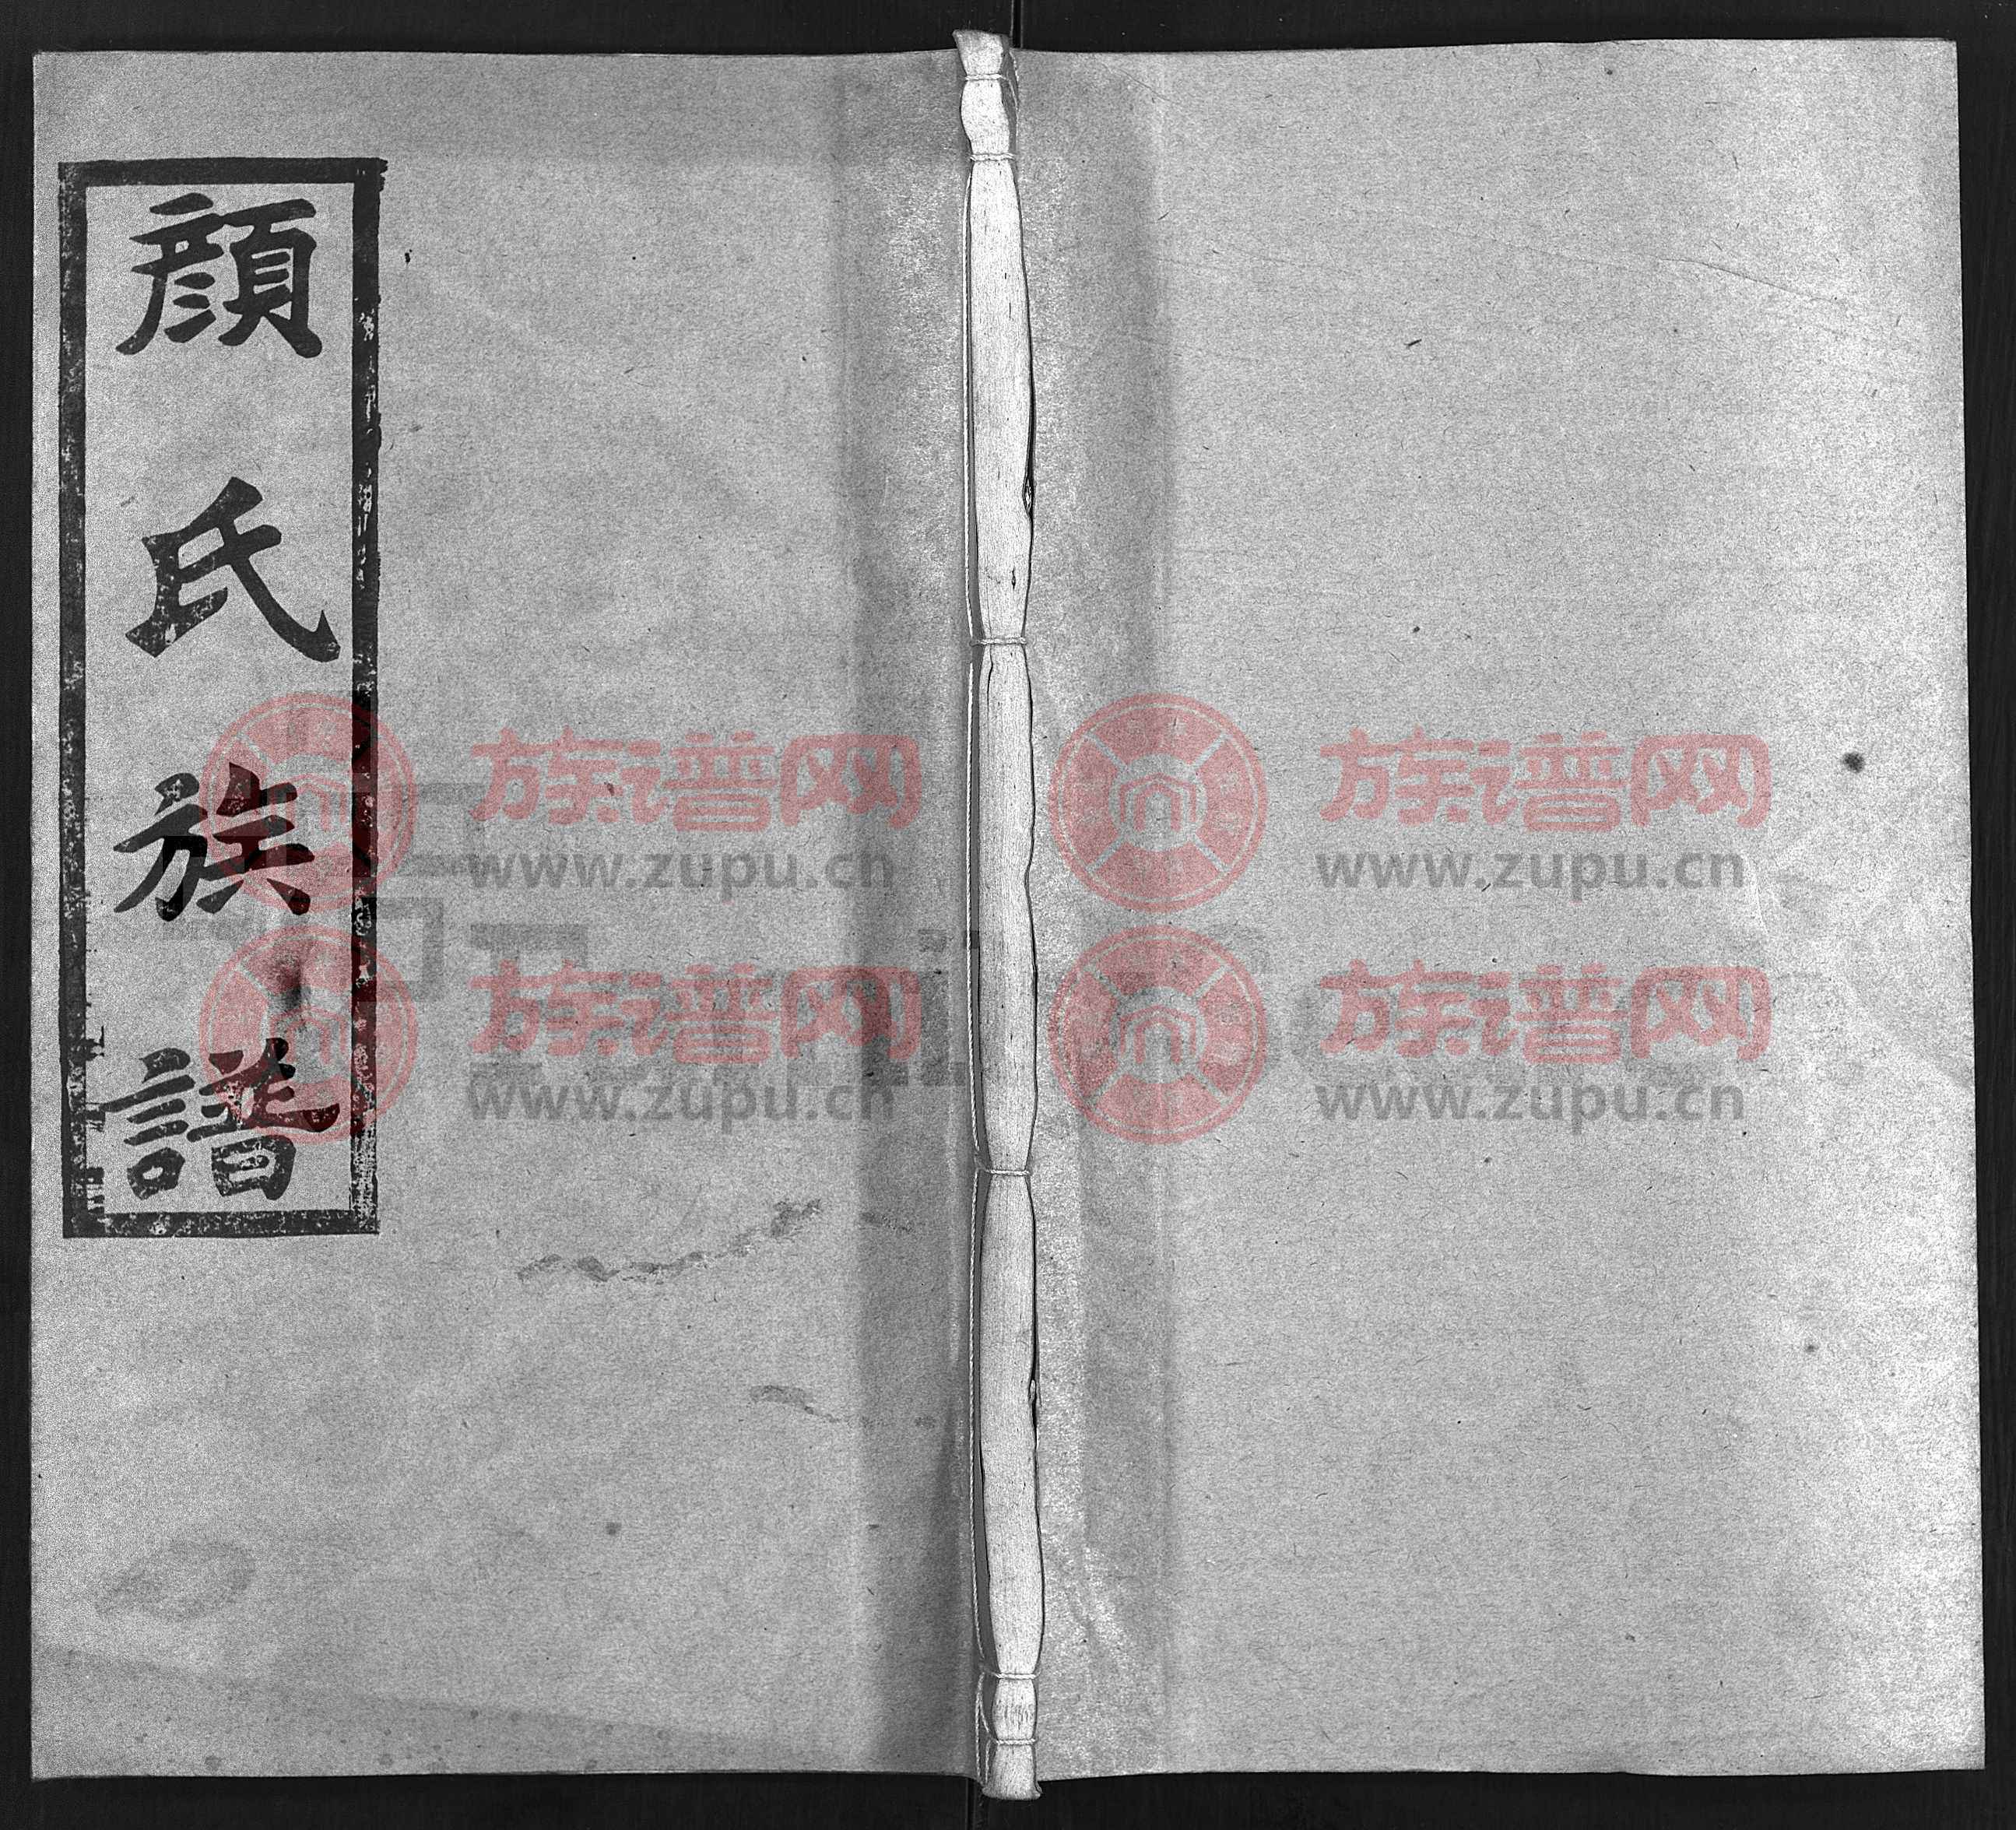 顔氏族譜
族谱网
www.zupu.cn
族谱网
www.zupu.cn
族谱网
www.zupu.cn
族谱网
www.zupu.cn